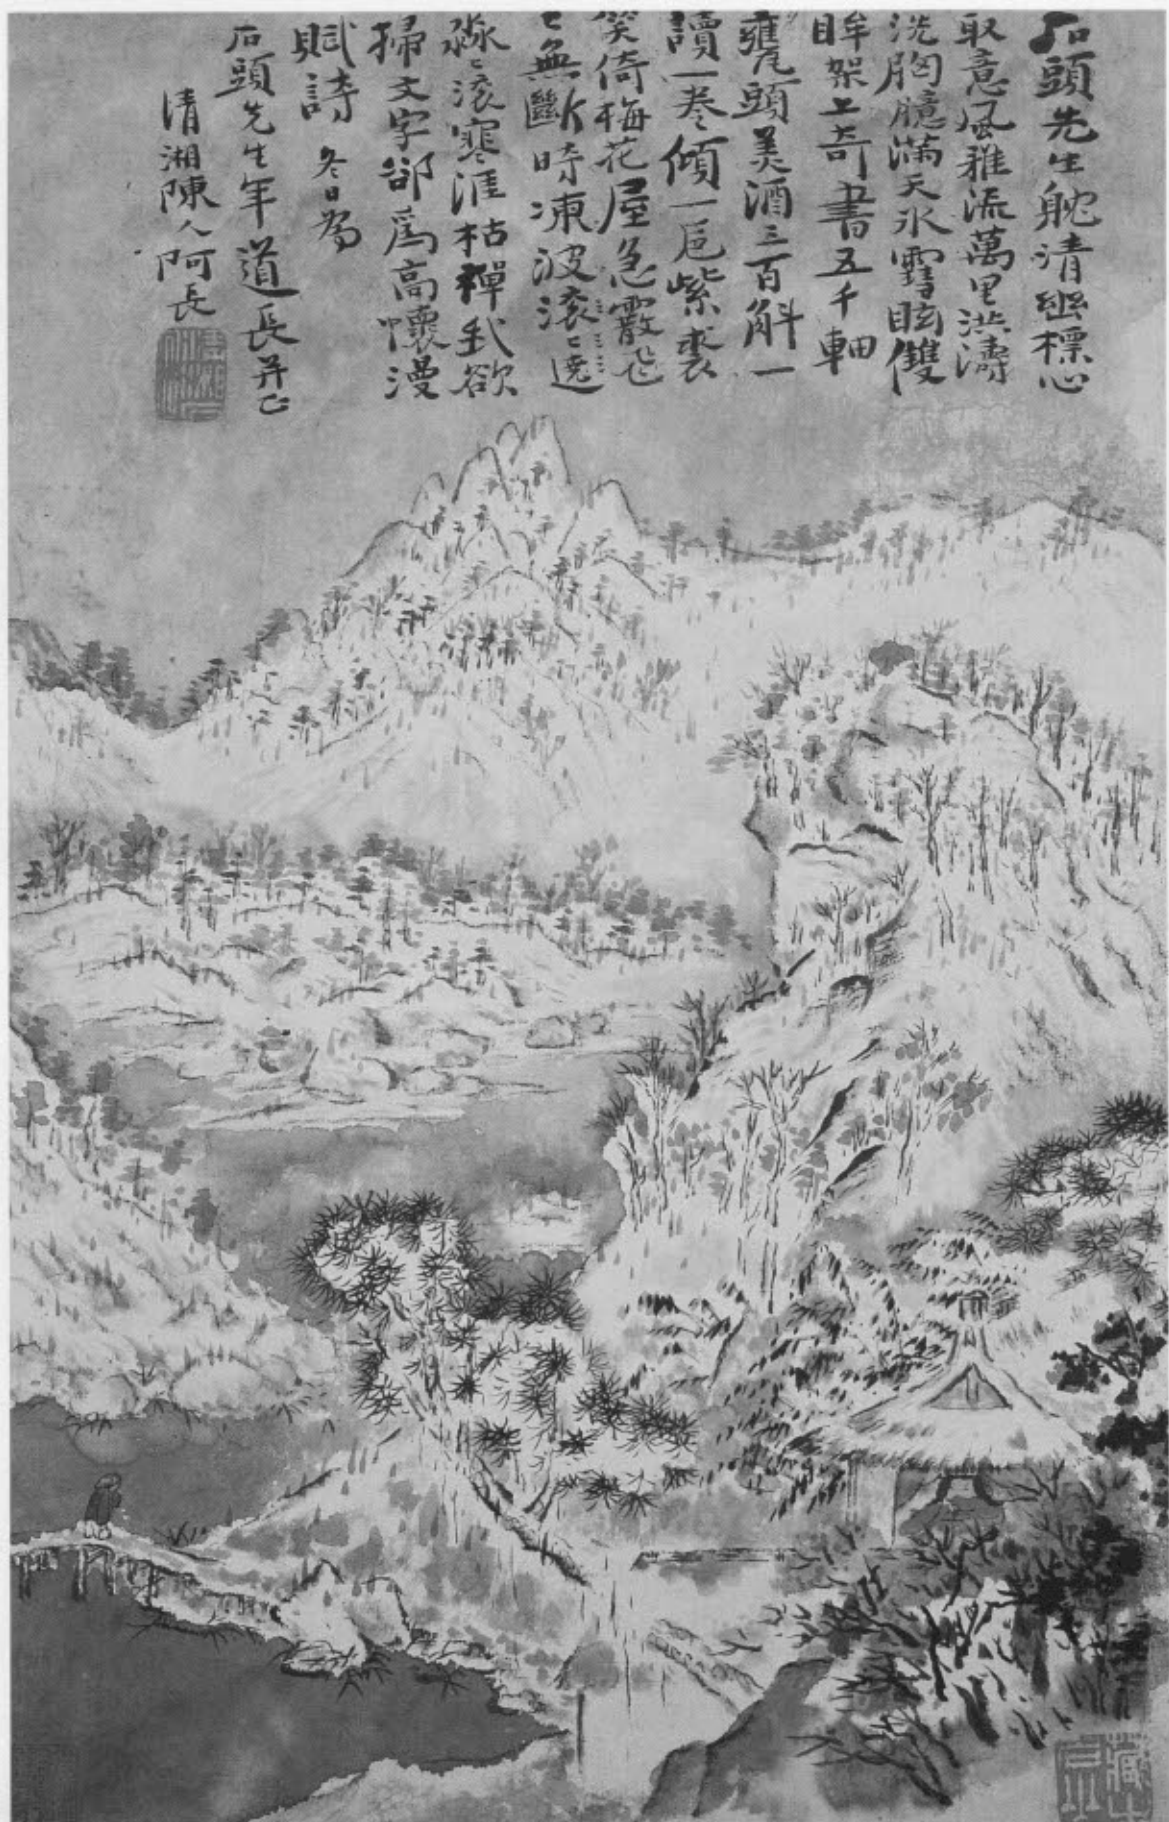 石頭先生躭清幽標心
取意風雅流萬里洪濤
洗胸臆滿天冰雪眩雙
眸架上奇書五千軸
甕頭美酒三百斛一
讀一卷傾一卮紫裘
笑倚梅花屋急霰飛
飛無斷時凍波滾滾遶
淼淼滾寒涯枯禪我欲
掃文字卻爲高懷漫
賦詩 冬日爲
石頭先生年道長并正
清湘陳人阿長